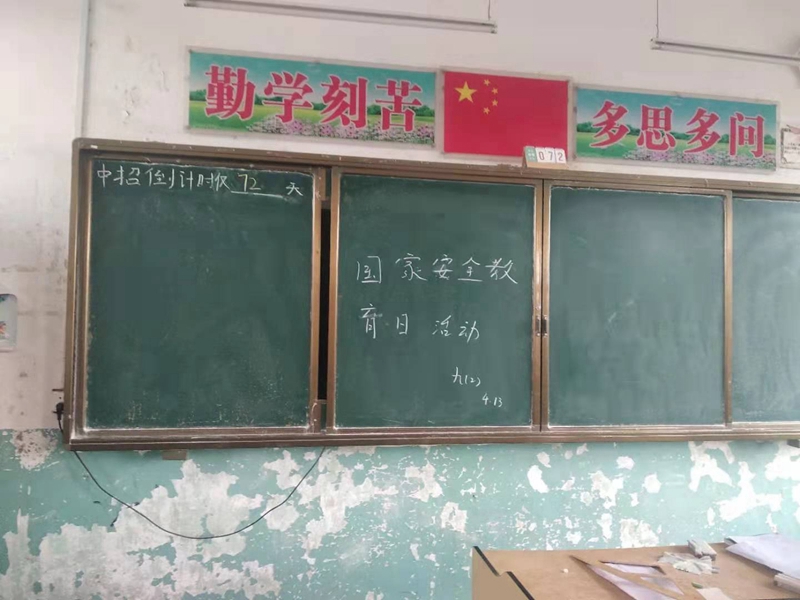 勤学刻苦
多思多问
072
中招倒计时仅72天
国家安全教
育日活动
九(2)
4.13